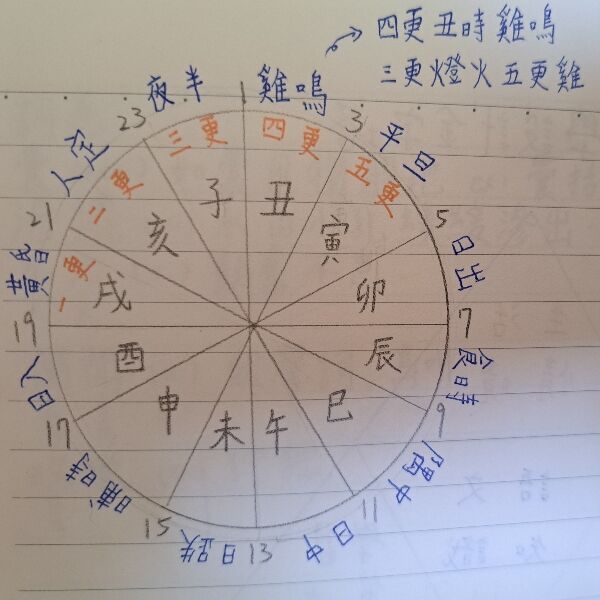 四更丑時雞鳴
三更燈火五更雞
夜半
雞鳴
平旦
日出
食時
隅中
日中
日昳
晡時
日入
黃昏
人定
23
1
3
5
7
9
11
13
15
17
19
21
三更
四更
五更
一更
二更
子
丑
寅
卯
辰
巳
午
未
申
酉
戌
亥